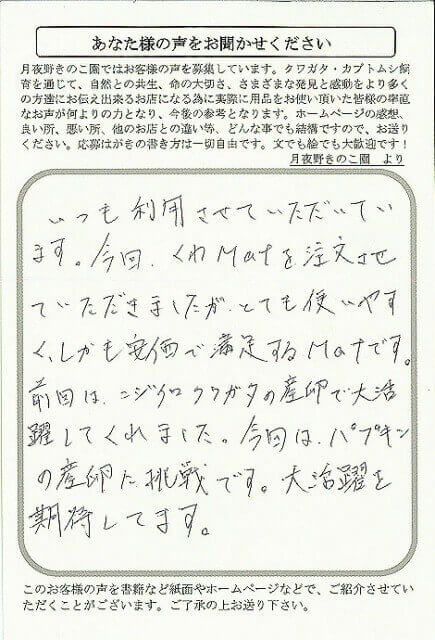 あなた様の声をお聞かせください
月夜野きのこ園ではお客様の声を募集しています。クワガタ・カブトムシ飼
育を通じて、自然との共生、命の大切さ、さまざまな発見と感動をより多く
の方達にお伝え出来るお店になる為に実際に用品をお使い頂いた皆様の率直
なお声が何よりの力となり、今後の参考となります。ホームページの感想、
良い所、悪い所、他のお店との違い等、どんな事でも結構ですので、お送り
ください。応募はがきの書き方は一切自由です。文でも絵でも大歓迎です！
月夜野きのこ園 より
いつも利用させていただいてい
ます。今回、くわMatを注文させ
ていただきましたが、とても使いやす
く、しかも安価で満足するMatです。
前回は、ニジイロクワガタの産卵で大活
躍してくれました。今回は、パプキン
の産卵に挑戦です。大活躍を
期待してます。
このお客様の声を書籍など紙面やホームページなどで、ご紹介させてい
ただくことがございます。ご了承の上お送り下さい。